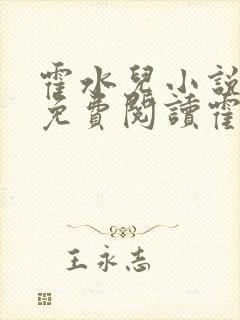 霍水兒小說
免費閱讀霍
王永志